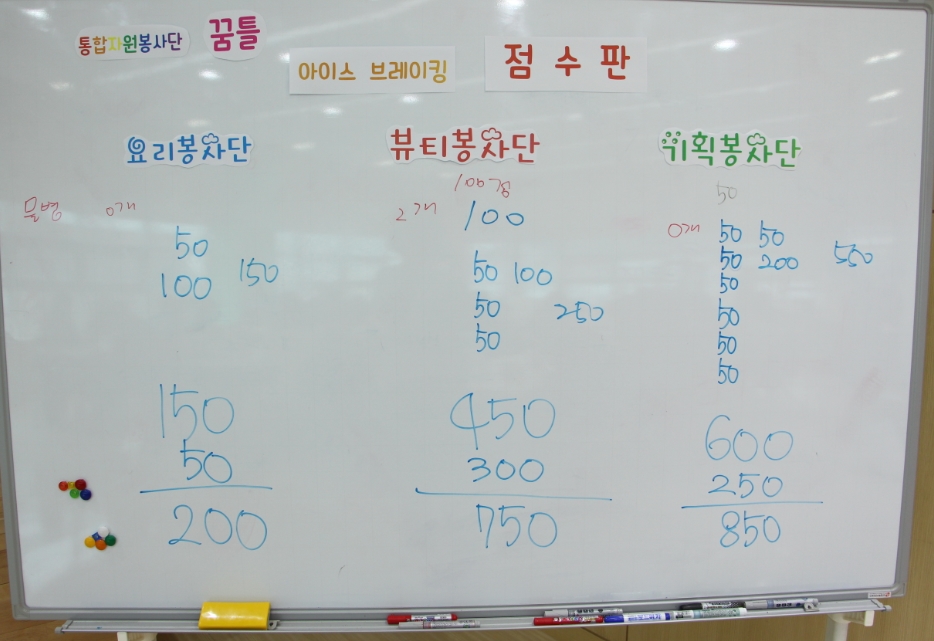 통합자원봉사단 꿈틀
아이스 브레이킹 점 수 판
요리봉사단
뷰티봉사단
기획봉사단
물병 0개
50
100 150
150
50
200
100점
2개 100
50 100
50 250
50
450
300
750
50
0개 50 50
50 200 550
50
50
50
50
600
250
850